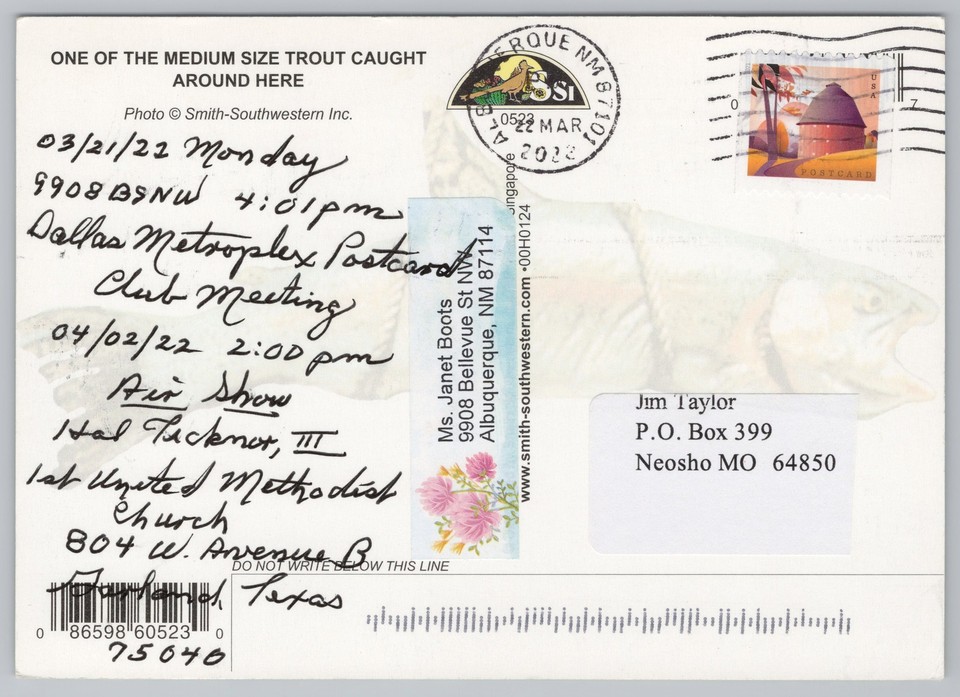 ONE OF THE MEDIUM SIZE TROUT CAUGHT
AROUND HERE
Photo © Smith-Southwestern Inc.
03/21/22 Monday
9908 BSNW 4:01pm
Dallas Metroplex Postcard
Club Meeting
04/02/22 2:00 pm
Air Show
Hal Ticknor, III
1st United Methodist
Church
804 W. Avenue B
DO NOT WRITE BELOW THIS LINE
Garland, Texas
0 86598 60523 0
75040
Ms. Janet Boots
9908 Bellevue St NW
Albuquerque, NM 87114
www.smith-southwestern.com •00H0124
SSI
0523
ERQUE NM 87101
22 MAR
USA
POSTCARD
0 7
Jim Taylor
P.O. Box 399
Neosho MO 64850